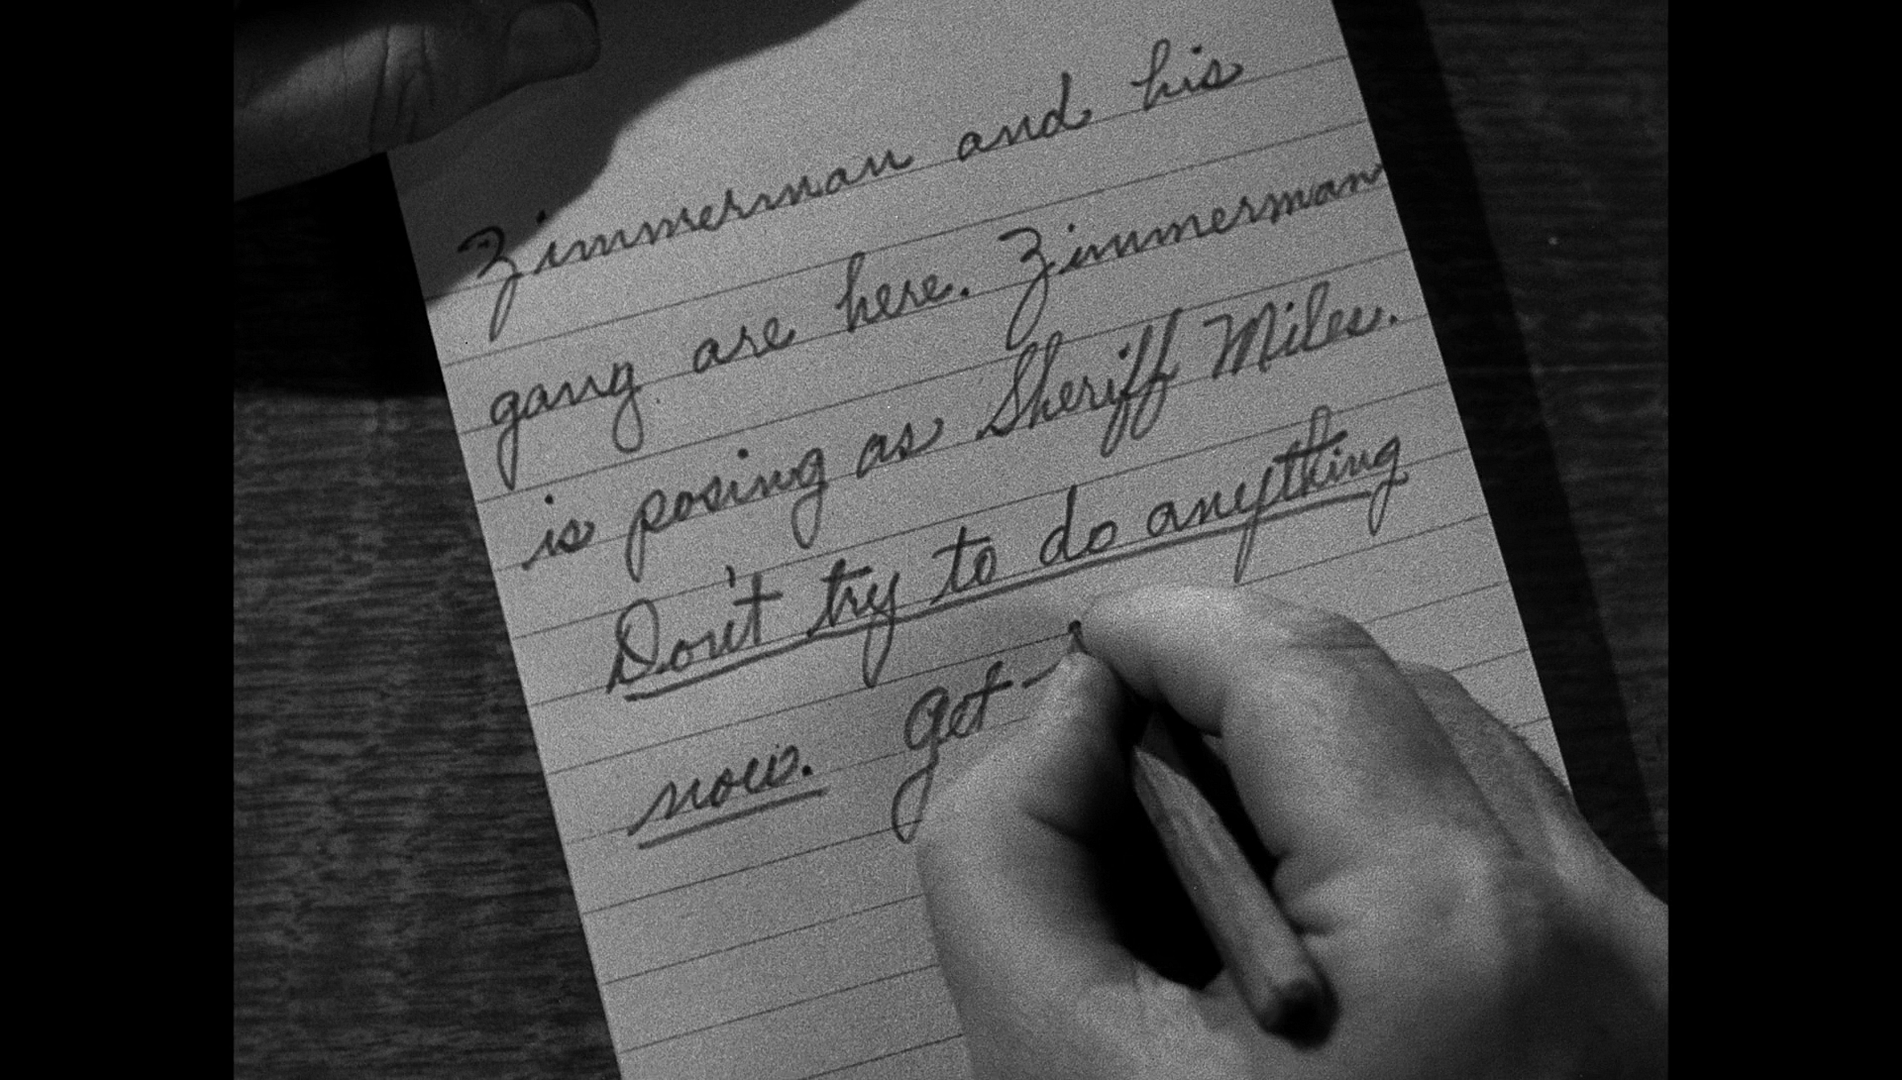 Zimmerman and his
gang are here. Zimmerman
is posing as Sheriff Miles.
Don't try to do anything
now. Get